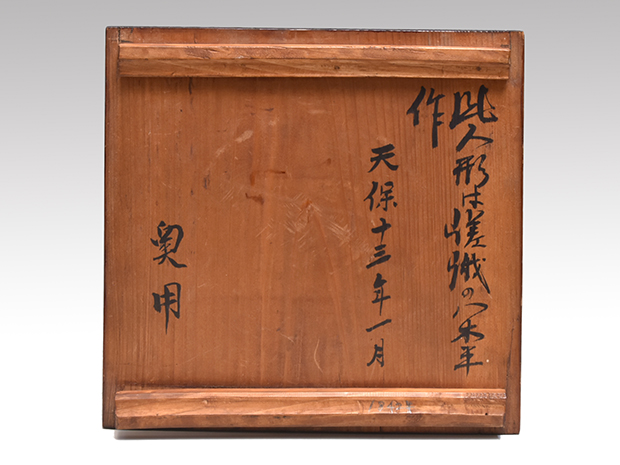 此人形は嵯峨の八木平
作
天保十三年一月
奥用